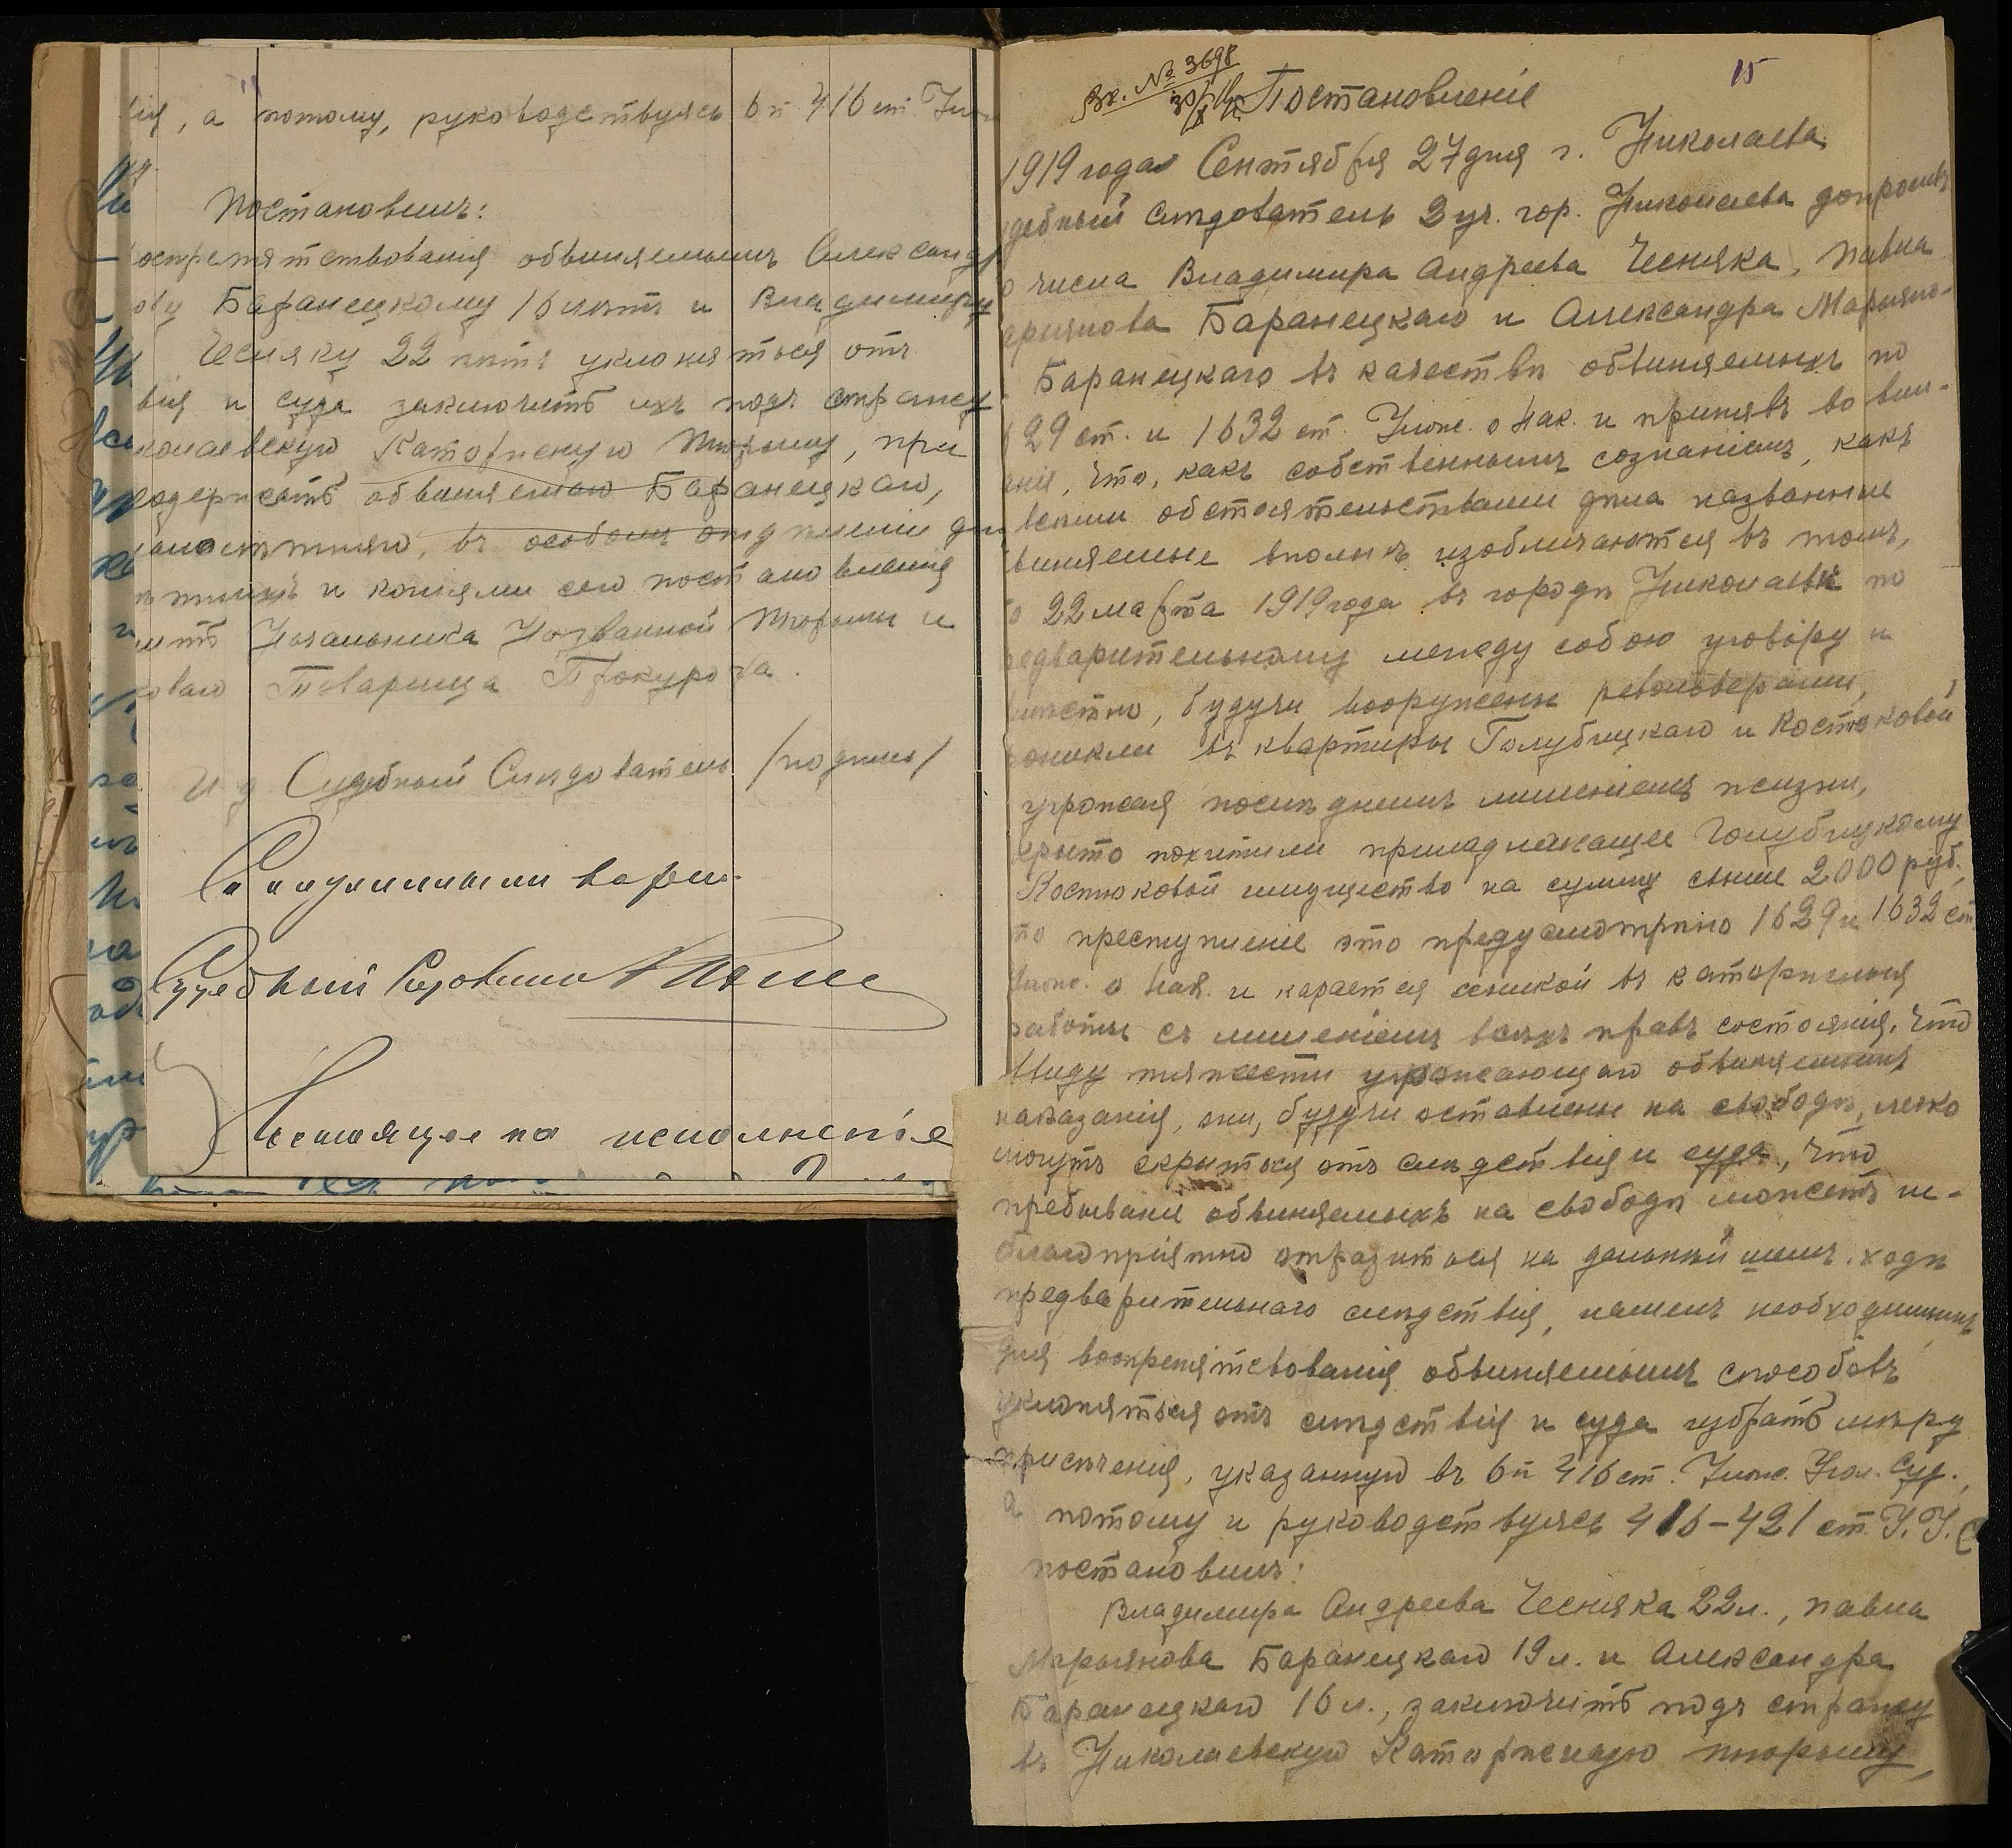 вія, а потому, руководствуясь 6 п 416 ст.
постановилъ:
воспрепятствованія обвиняемымъ Александру
Баранецкому 16 лѣтъ и Владимиру
Чесняку 22 лѣтъ уклоняться отъ
вія и суда заключить ихъ подъ стражу
колаевскую Каторжную тюрьму, при
содержать обвиняемаго Баранецкаго,
въ особомъ отдѣленіи для
и копіями сего постановленія
Начальника Названной тюрьмы и
коваго Товарища Прокурора.
И д Судебный Слѣдователь /подпись/
Съ подлиннымъ вѣрно.
Судебный Слѣдователь
Настоящее на исполненіе
Вх. № 3698
15
Постановленіе
1919 года Сентября 27 дня г. Николаева.
удебный слѣдователь 2 уч. гор. Николаева допросивъ
числа Владимира Андреева Чесняка, Павла
арьянова Баранецкаго и Александра Марьяно-
Баранецкаго въ качествѣ обвиняемыхъ по
629 ст. и 1632 ст. Улож. о Нак. и принявъ во вни-
аніе, что, какъ собственнымъ сознаніемъ, какъ
всѣми обстоятельствами дѣла названные
виняемые вполнѣ изобличаются въ томъ,
то 22 марта 1919 года въ городѣ Николаевѣ по
редварительному между собою уговору и
вмѣстно, будучи вооружены револьверами,
роникли въ квартиры Голубицкаго и Костюковой
угрожая послѣднимъ лишеніемъ жизни,
крыто похитили принадлежащее Голубицкому
Костюковой имущество на сумму свыше 2000 руб.,
то преступленіе это предусмотрѣно 1629 и 1632 ст
Улож. о Нак. и карается ссылкой въ каторжныя
работы съ лишеніемъ всѣхъ правъ состоянія, что
ввиду тяжести угрожающаго обвиняемымъ
наказанія, они, будучи оставлены на свободѣ, легко
могутъ скрыться отъ слѣдствія и суда, что
пребываніе обвиняемыхъ на свободѣ можетъ не-
благопріятно отразиться на дальнѣйшемъ ходѣ
предварительнаго слѣдствія, нашелъ необходимымъ
для воспрепятствованія обвиняемымъ способовъ
уклоняться отъ слѣдствія и суда избрать мѣру
пресѣченія, указанную въ 6 п 416 ст. Улож. Угол. Суд.,
а потому и руководствуясь 416-421 ст. У. У. С
постановилъ:
Владимира Андреева Чесняка 22 л., Павла
Марьянова Баранецкаго 19 л. и Александра
Баранецкаго 16 л., заключить подъ стражу
въ Николаевскую Каторжную тюрьму,